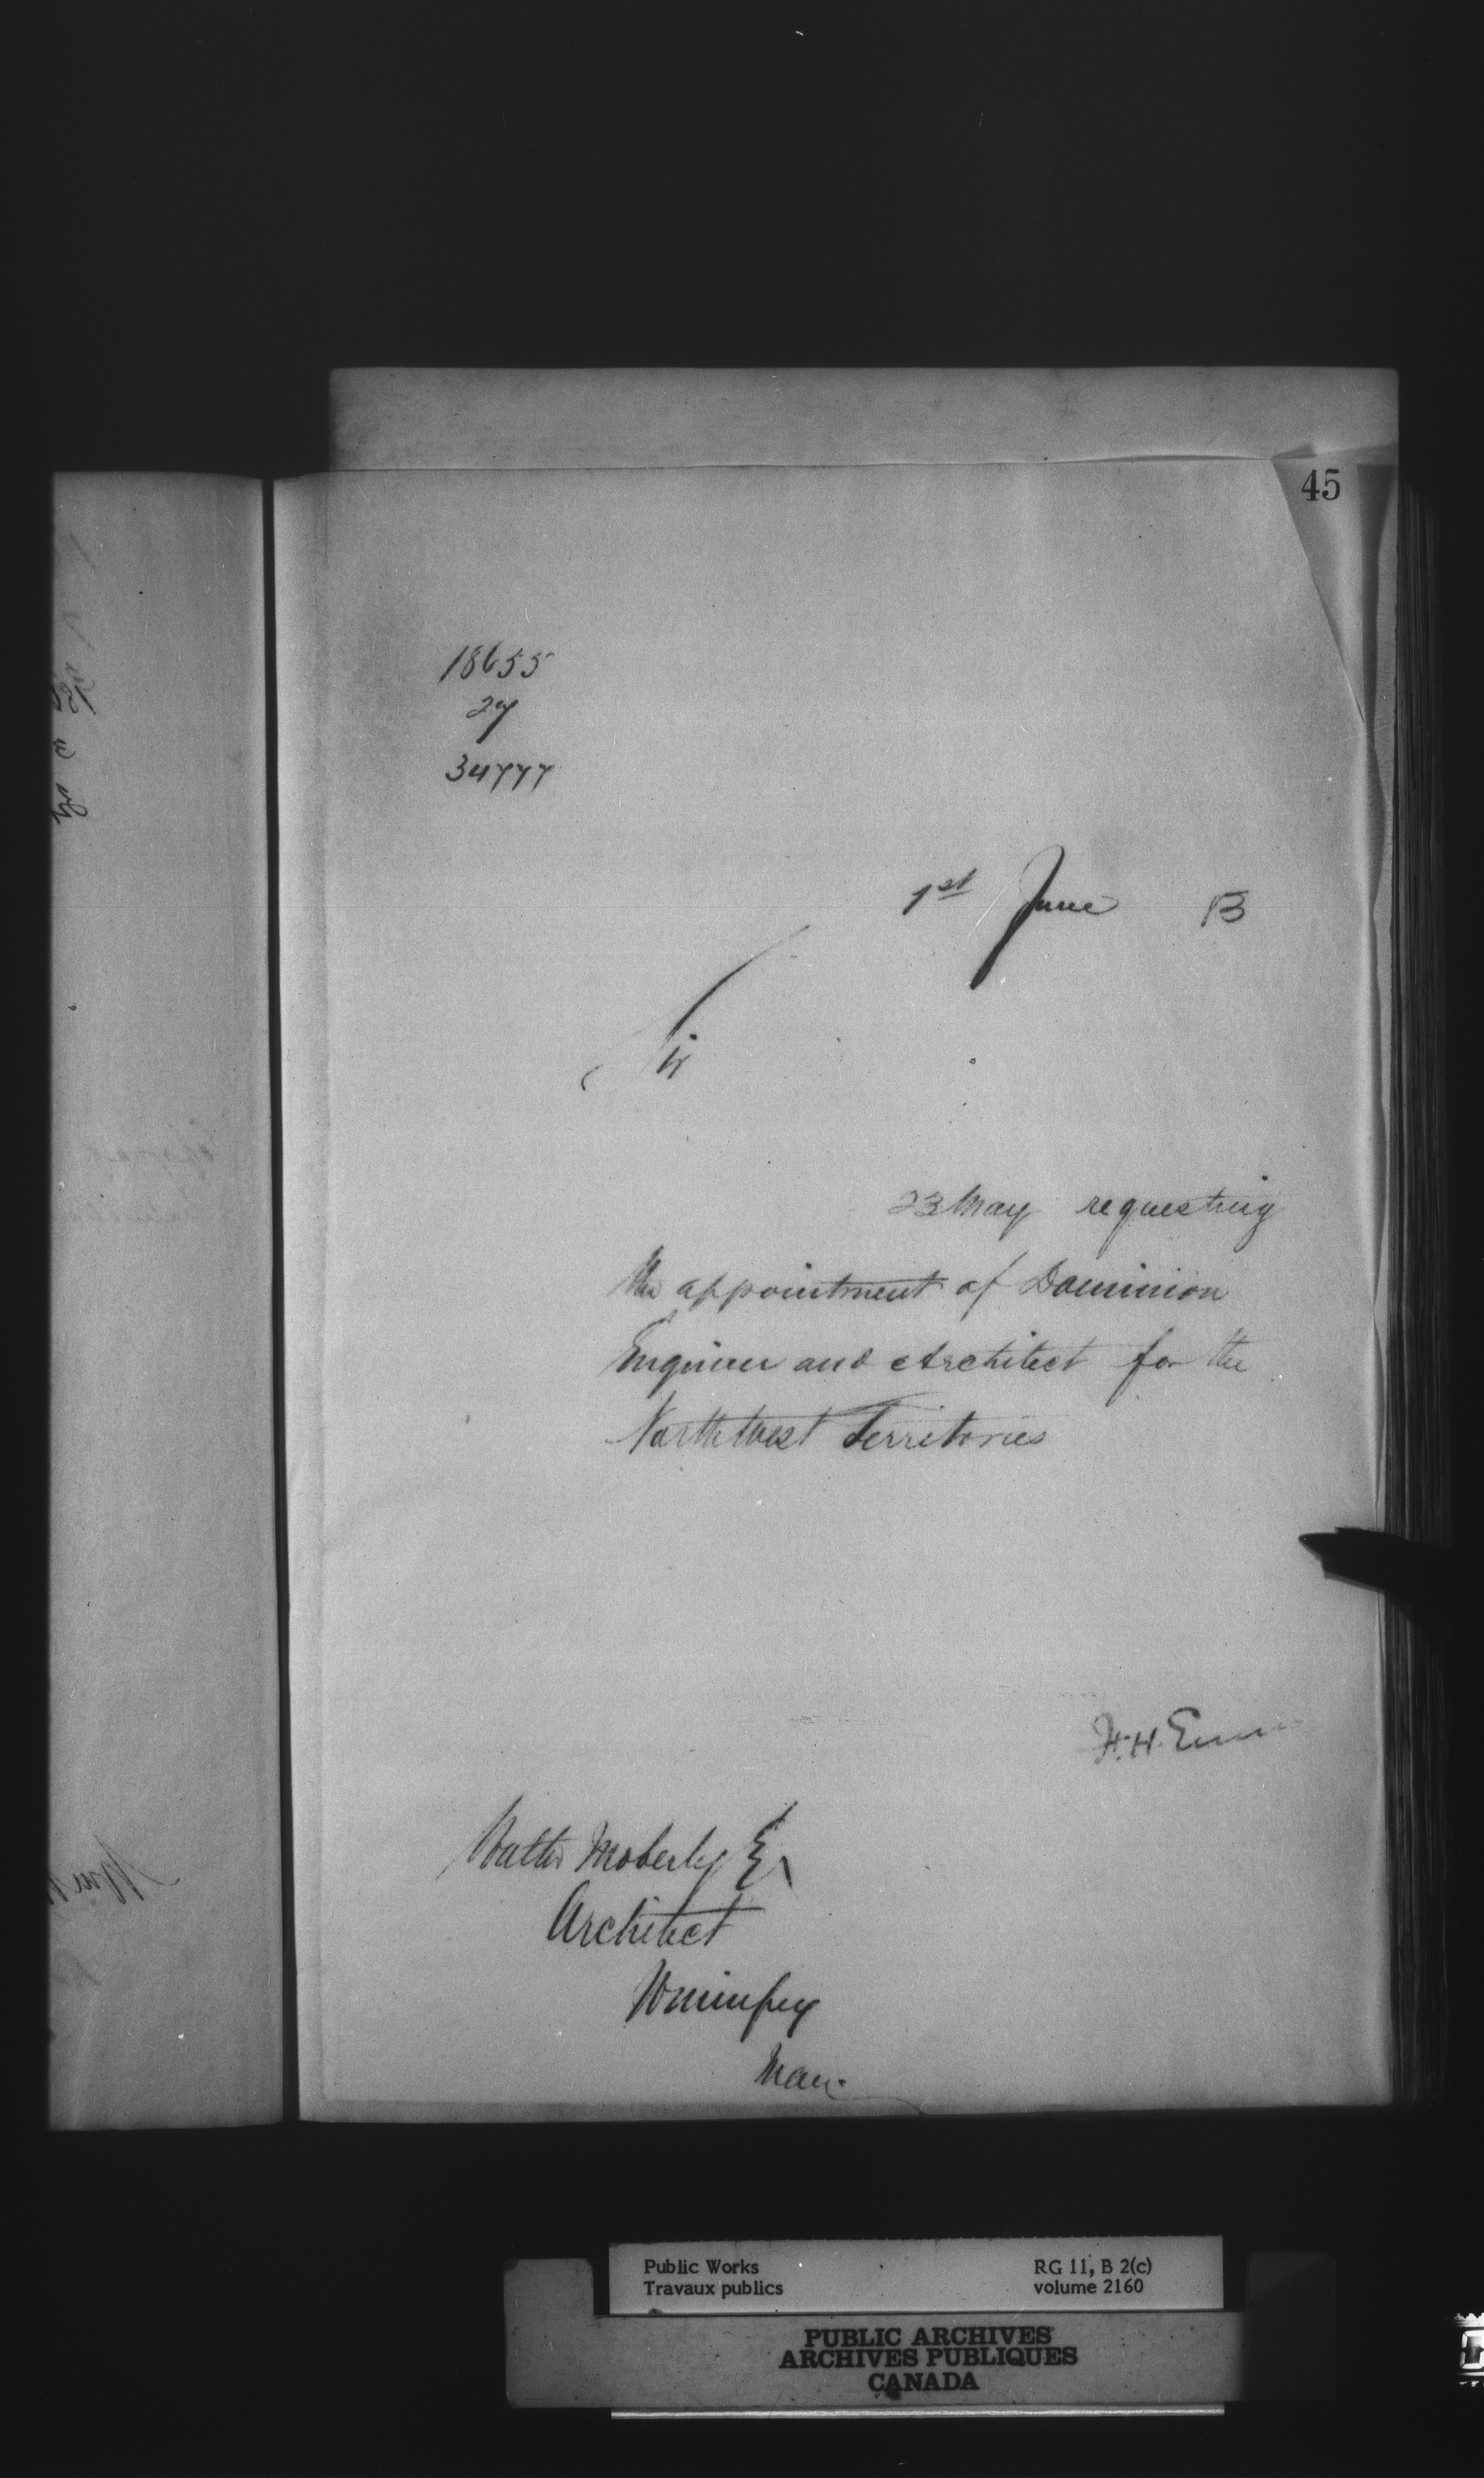 45
18655
27
34777
1st June B
Sir
23 May requesting
the appointment of Dominion
Engineer and Architect for the
North West Territories
H. H. Ennis
Walter Moberly E
Architect
Winnipeg
Man.
Public Works RG 11, B 2(c)
Travaux publics volume 2160
PUBLIC ARCHIVES
ARCHIVES PUBLIQUES
CANADA